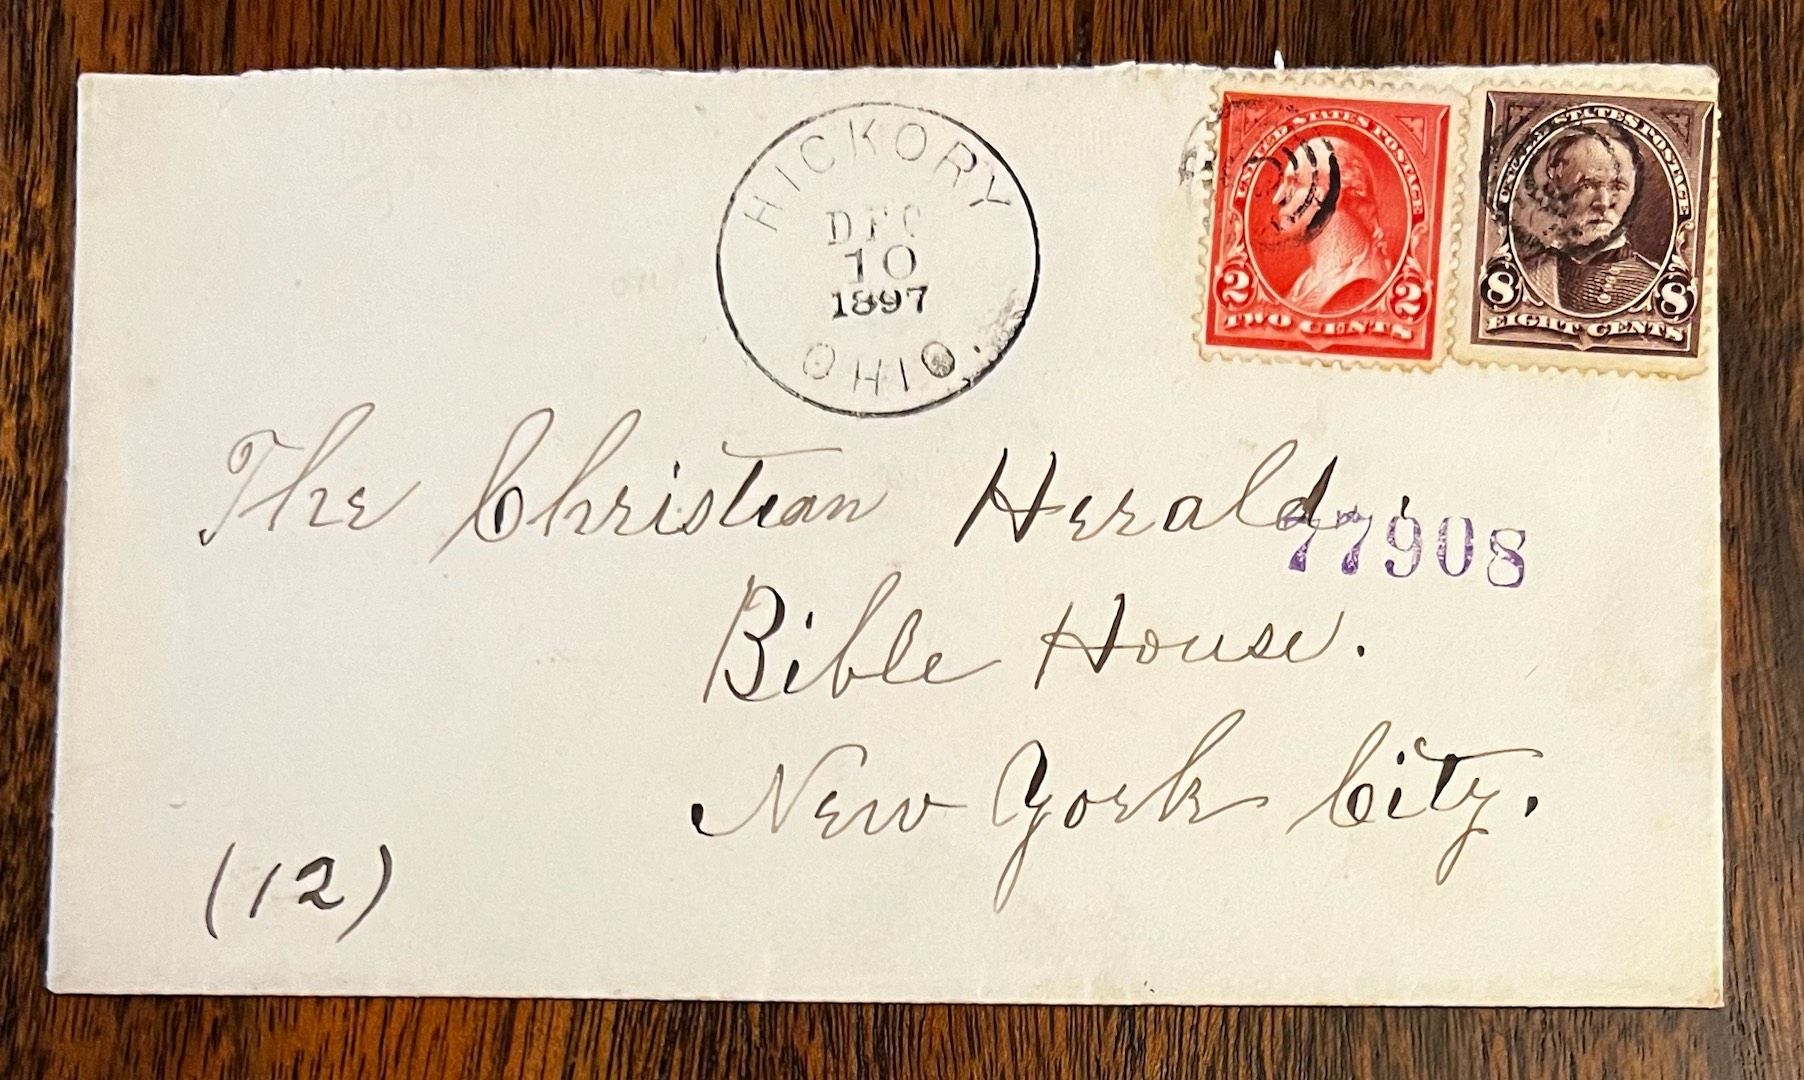 HICKORY
DEC
10
1897
OHIO.
UNITED STATES POSTAGE
2 2
TWO CENTS
UNITED STATES POSTAGE
8 8
EIGHT CENTS
The Christian Herald.
77908
Bible House.
New York City.
(12)